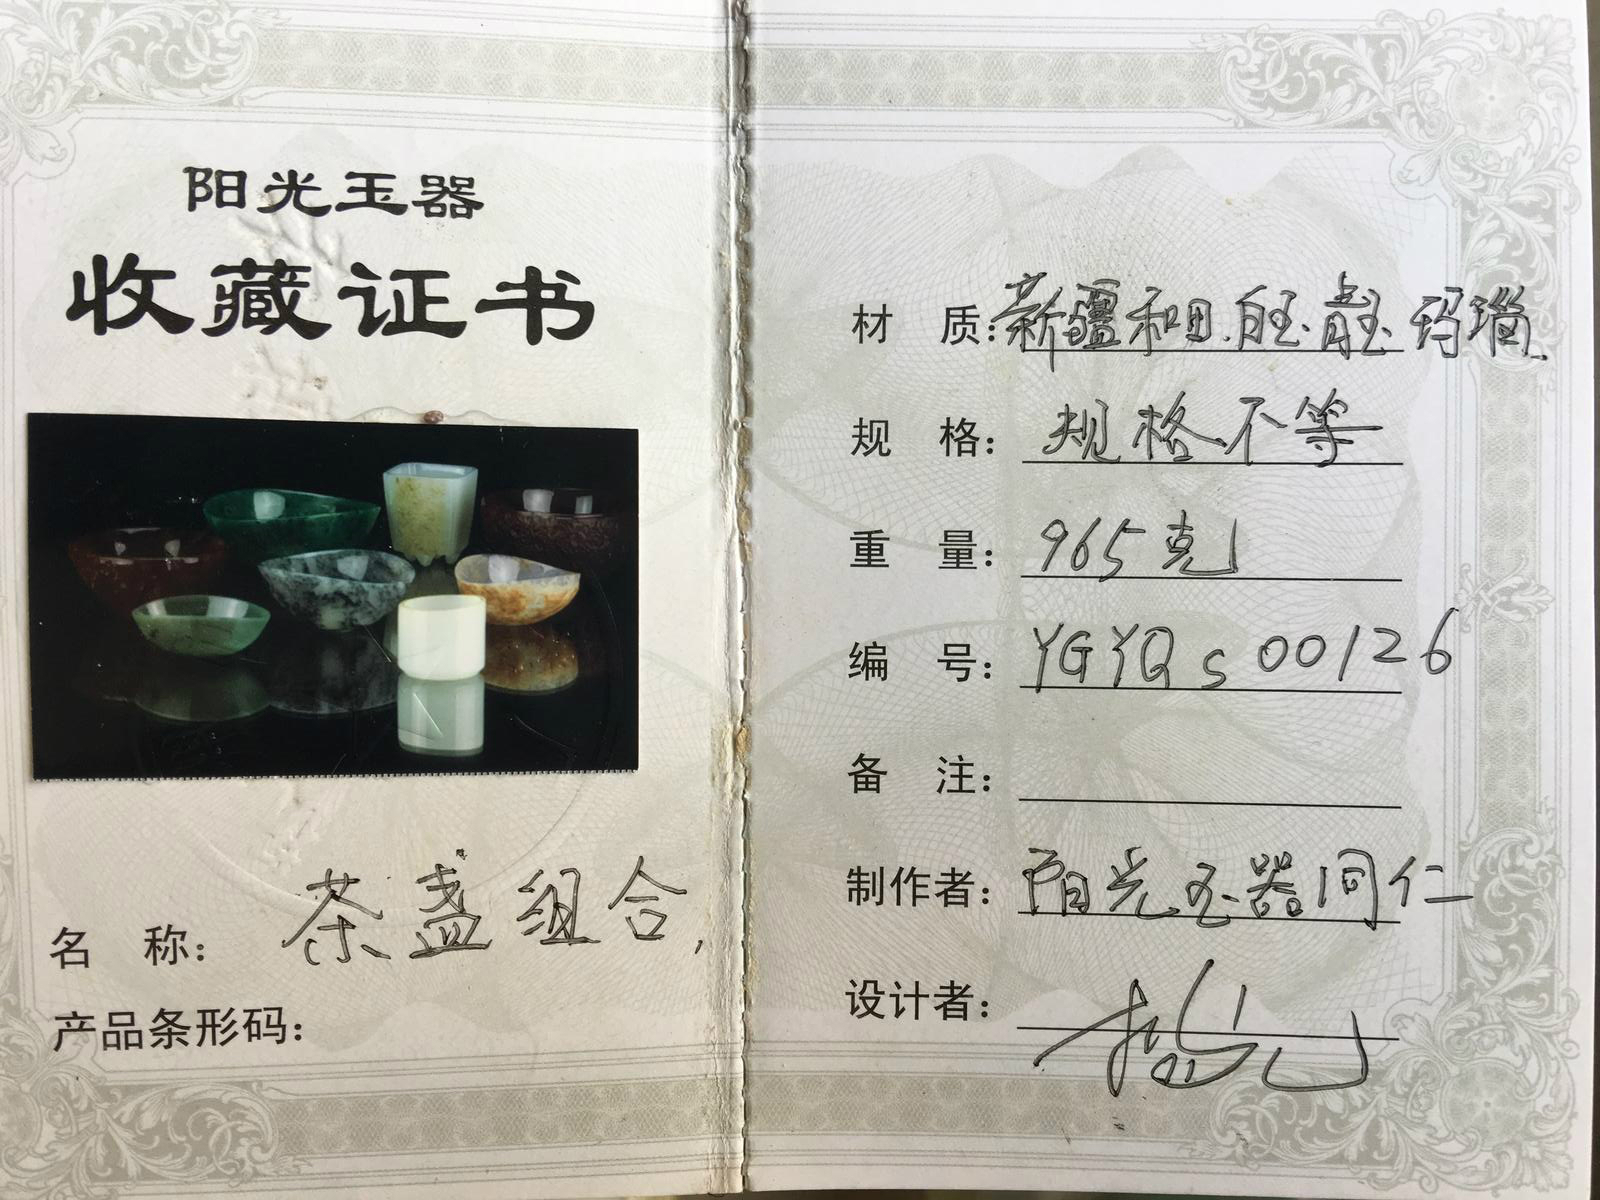 阳光玉器
收藏证书
名 称：茶盏组合，
产品条形码：
材 质：新疆和田.白玉.青玉.玛瑙.
规 格：规格不等
重 量：965克
编 号：YGYQs00126
备 注：
制作者：阳光玉器同仁
设计者：